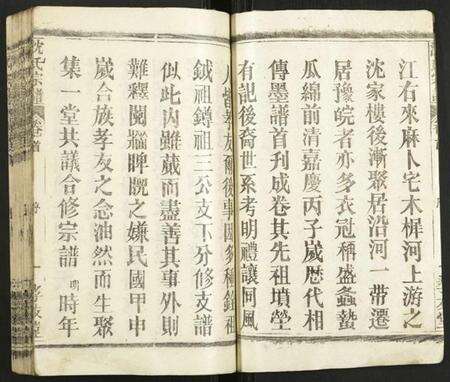 江右來麻卜宅木樨河上游之
沈家樓後漸聚居沿河一帶遷
居豫皖者亦多衣冠稱盛螽蟄
瓜綿前清嘉慶丙子歲歷代相
傳墨譜首刋成卷其先祖墳塋
有記後裔世系考明禮讓同風
人皆孝友爾後事因多種鍾祖
鉞祖鐏祖三公支下分修支譜
似此內雖蕆而盡善其事外則
難釋鬩牆睥睨之嫌民國甲申
歲合族孝友之念油然而生聚
集一堂共議合修宗譜 時年
沈氏宗譜 卷首 序